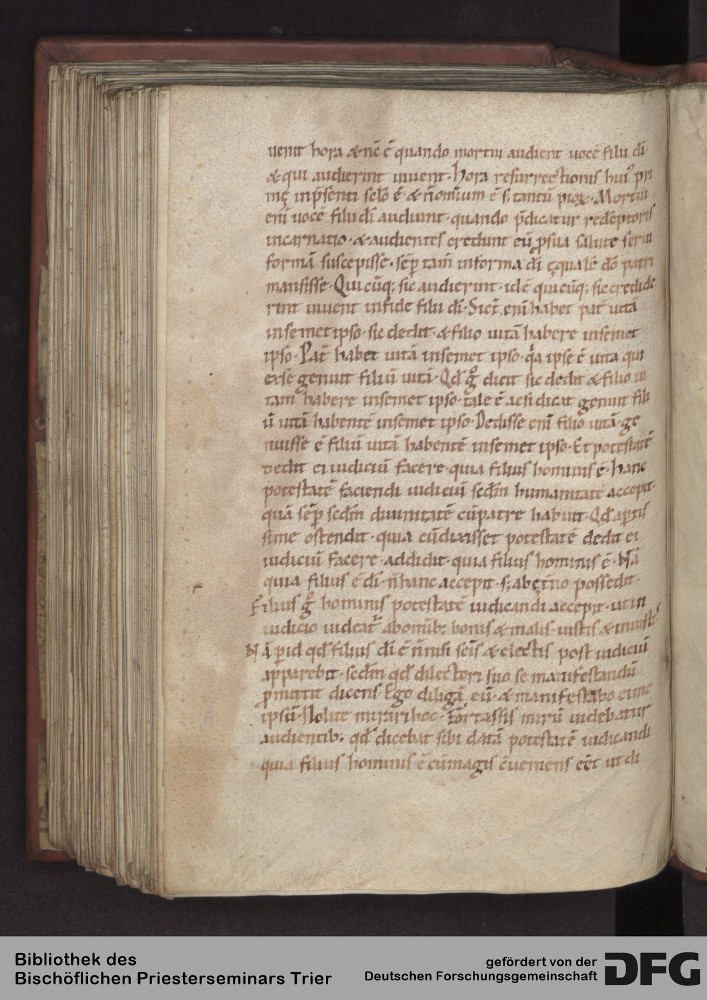 uenit hora & nc̄ ē quando mortui audient uocē filii dī
& qui audierint uiuent. Hora resurrectionis hui᾽ pri
mę inp̄senti sclo ē & n̄ omium ē s; tantū pioꝝ. Mortui
enī uocē filii dī audiunt. quando p̄dicatur redēptoris
incarnatio. & audientes credunt eū ꝓsua salute serui
formā suscepisse. sēp tam̄ informa dī ęqualē dō patri
mansisse. Qui cūq; sic audierint. idē qui cūq; sic credide
rint uiuent infide filii dī. Sicut enī habet pat̄ uitā
insemet ipso. sic dedit & filio uitā habere insemet
ipso. Pat̄ habet uitā insemet ipso. q̄a ipse ē uita qui
exse genuit filiū uitā. Qd̄ gͦ dicit sic dedit & filio ui
tam habere insemet ipso. tale ē acsi dicat genuit fili
ū uitā habentē insemet ipso. Dedisse enī filio uitā. ge
nuisse ē filiū uitā habentē insemet ipso. Et potestatē
dedit ei iudiciū facere. quia filius hominis ē. hanc
potestatē faciendi iudiciū scdm̄ humanitatē accepit.
quā sēp scdm̄ diuinitatē cūpatre habuit. Qd̄ aptis
sime ostendit. quia cūdixisset potestatē dedit ei
iudiciū facere. addidit. quia filius hominis ē. Nā
quia filius ē dī. n̄ hanc accepit. s; abęt̄no possedit.
Filius gͦ hominis potestatē iudicandi accepit. ut in
iudicio uideat᷑ abomib; bonis & malis. iustis & iniustis
Nā ꝑ id qd̄ filius dī ē n̄ nisi scīs & electis post iudiciū
apparebit. scdm̄ qd̄ dilectori suo se manifestandū
ꝓmittit dicens. Ego diligā eū. & manifestabo ei me
ipsū. Nolite mirari hoc. Fortassis mirū uidebatur
audientib; qd̄ dicebat sibi datā potestatē iudicandi
quia filius hominis ē cūmagis c̄ueniens eēt ut di
Bibliothek des
Bischöflichen Priesterseminars Trier
gefördert von der
Deutschen Forschungsgemeinschaft
DFG